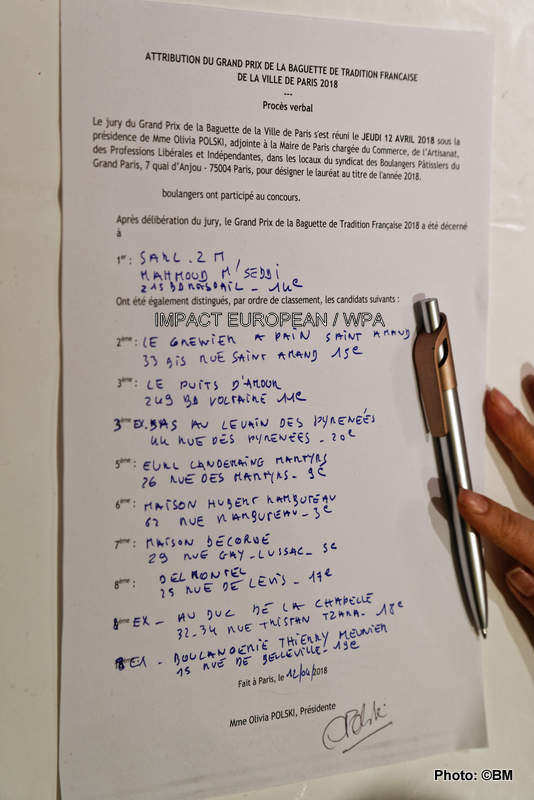 ATTRIBUTION DU GRAND PRIX DE LA BAGUETTE DE TRADITION FRANCAISE
DE LA VILLE DE PARIS 2018
---
Procès verbal
Le jury du Grand Prix de la Baguette de la Ville de Paris s'est réuni le JEUDI 12 AVRIL 2018 sous la
présidence de Mme Olivia POLSKI, adjointe à la Maire de Paris chargée du Commerce, de l'Artisanat,
des Professions Libérales et Indépendantes, dans les locaux du syndicat des Boulangers Pâtissiers du
Grand Paris, 7 quai d'Anjou - 75004 Paris, pour désigner le lauréat au titre de l'année 2018.
boulangers ont participé au concours.
Après délibération du jury, le Grand Prix de la Baguette de Tradition Française 2018 a été décerné
à
1er : SARL. 2 M
MAHMOUD M'SEDDI
215 BD RASPAIL - 14e
Ont été également distingués, par ordre de classement, les candidats suivants :
IMPACT EUROPEAN / WPA
2ème : LE GRENIER A PAIN SAINT AMAND
33 BIS RUE SAINT AMAND 15e
3ème : LE PUITS D'AMOUR
249 BD VOLTAIRE 11e
3ème EX. BAS AU LEVAIN DES PYRENEÉS
44 RUE DES PYRENEES - 20e
5ème : EURL MARTYRS
26 RUE DES MARTYRS - 9e
6ème : MAISON HUBERT RAMBUTEAU
62 RUE RAMBUTEAU - 3e
7ème : MAISON DECORDE
29 RUE GAY-LUSSAC - 5e
8ème : DELMONTEL
25 RUE DE LEVIS - 17e
8ème EX - AU DUC DE LA CHAPELLE
32-34 RUE TRISTAN TZARA - 18e
BOULANGERIE THIERRY MEUNIER
15 RUE DE BELLEVILLE - 19e
Fait à Paris, le 12/04/2018
Mme Olivia POLSKI, Présidente
Polski
Photo: ©BM